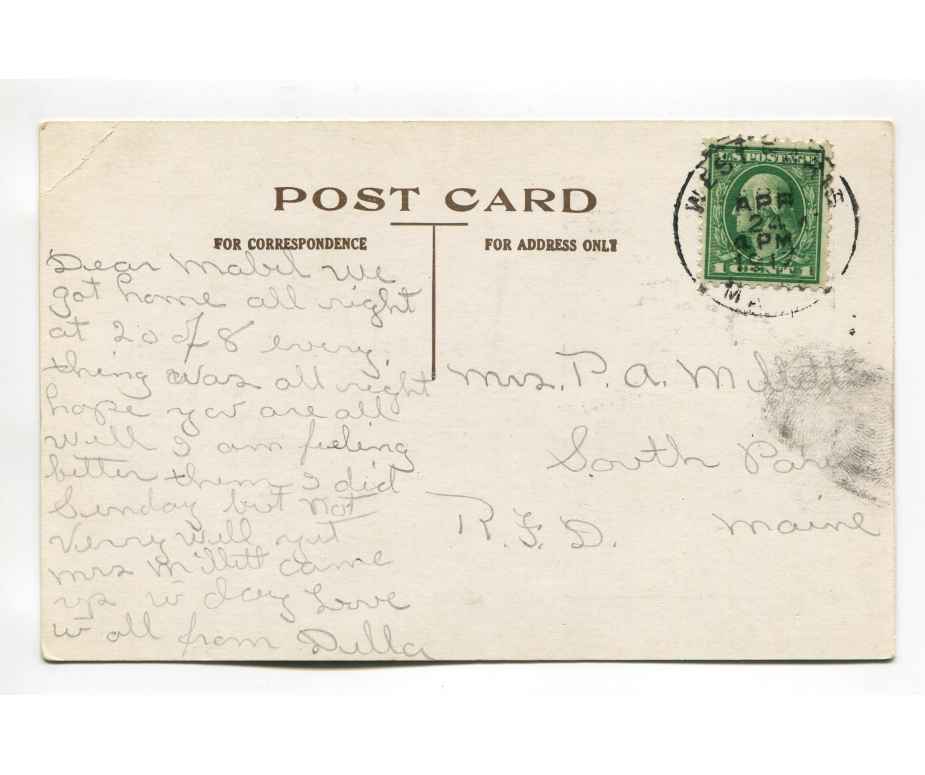 POST CARD
FOR CORRESPONDENCE
FOR ADDRESS ONLY
U.S. POSTAGE
APR
4 PM
1 CENT 1
Dear Mabel we
got home all right
at 20 of 8 every
thing was all right
hope you are all
well I am feeling
better them I did
Sunday but not
Verry well yet
mrs Millett came
up to day Love
to all from Della
Mrs. P. A. Millett
South Paris
R. F. D. Maine